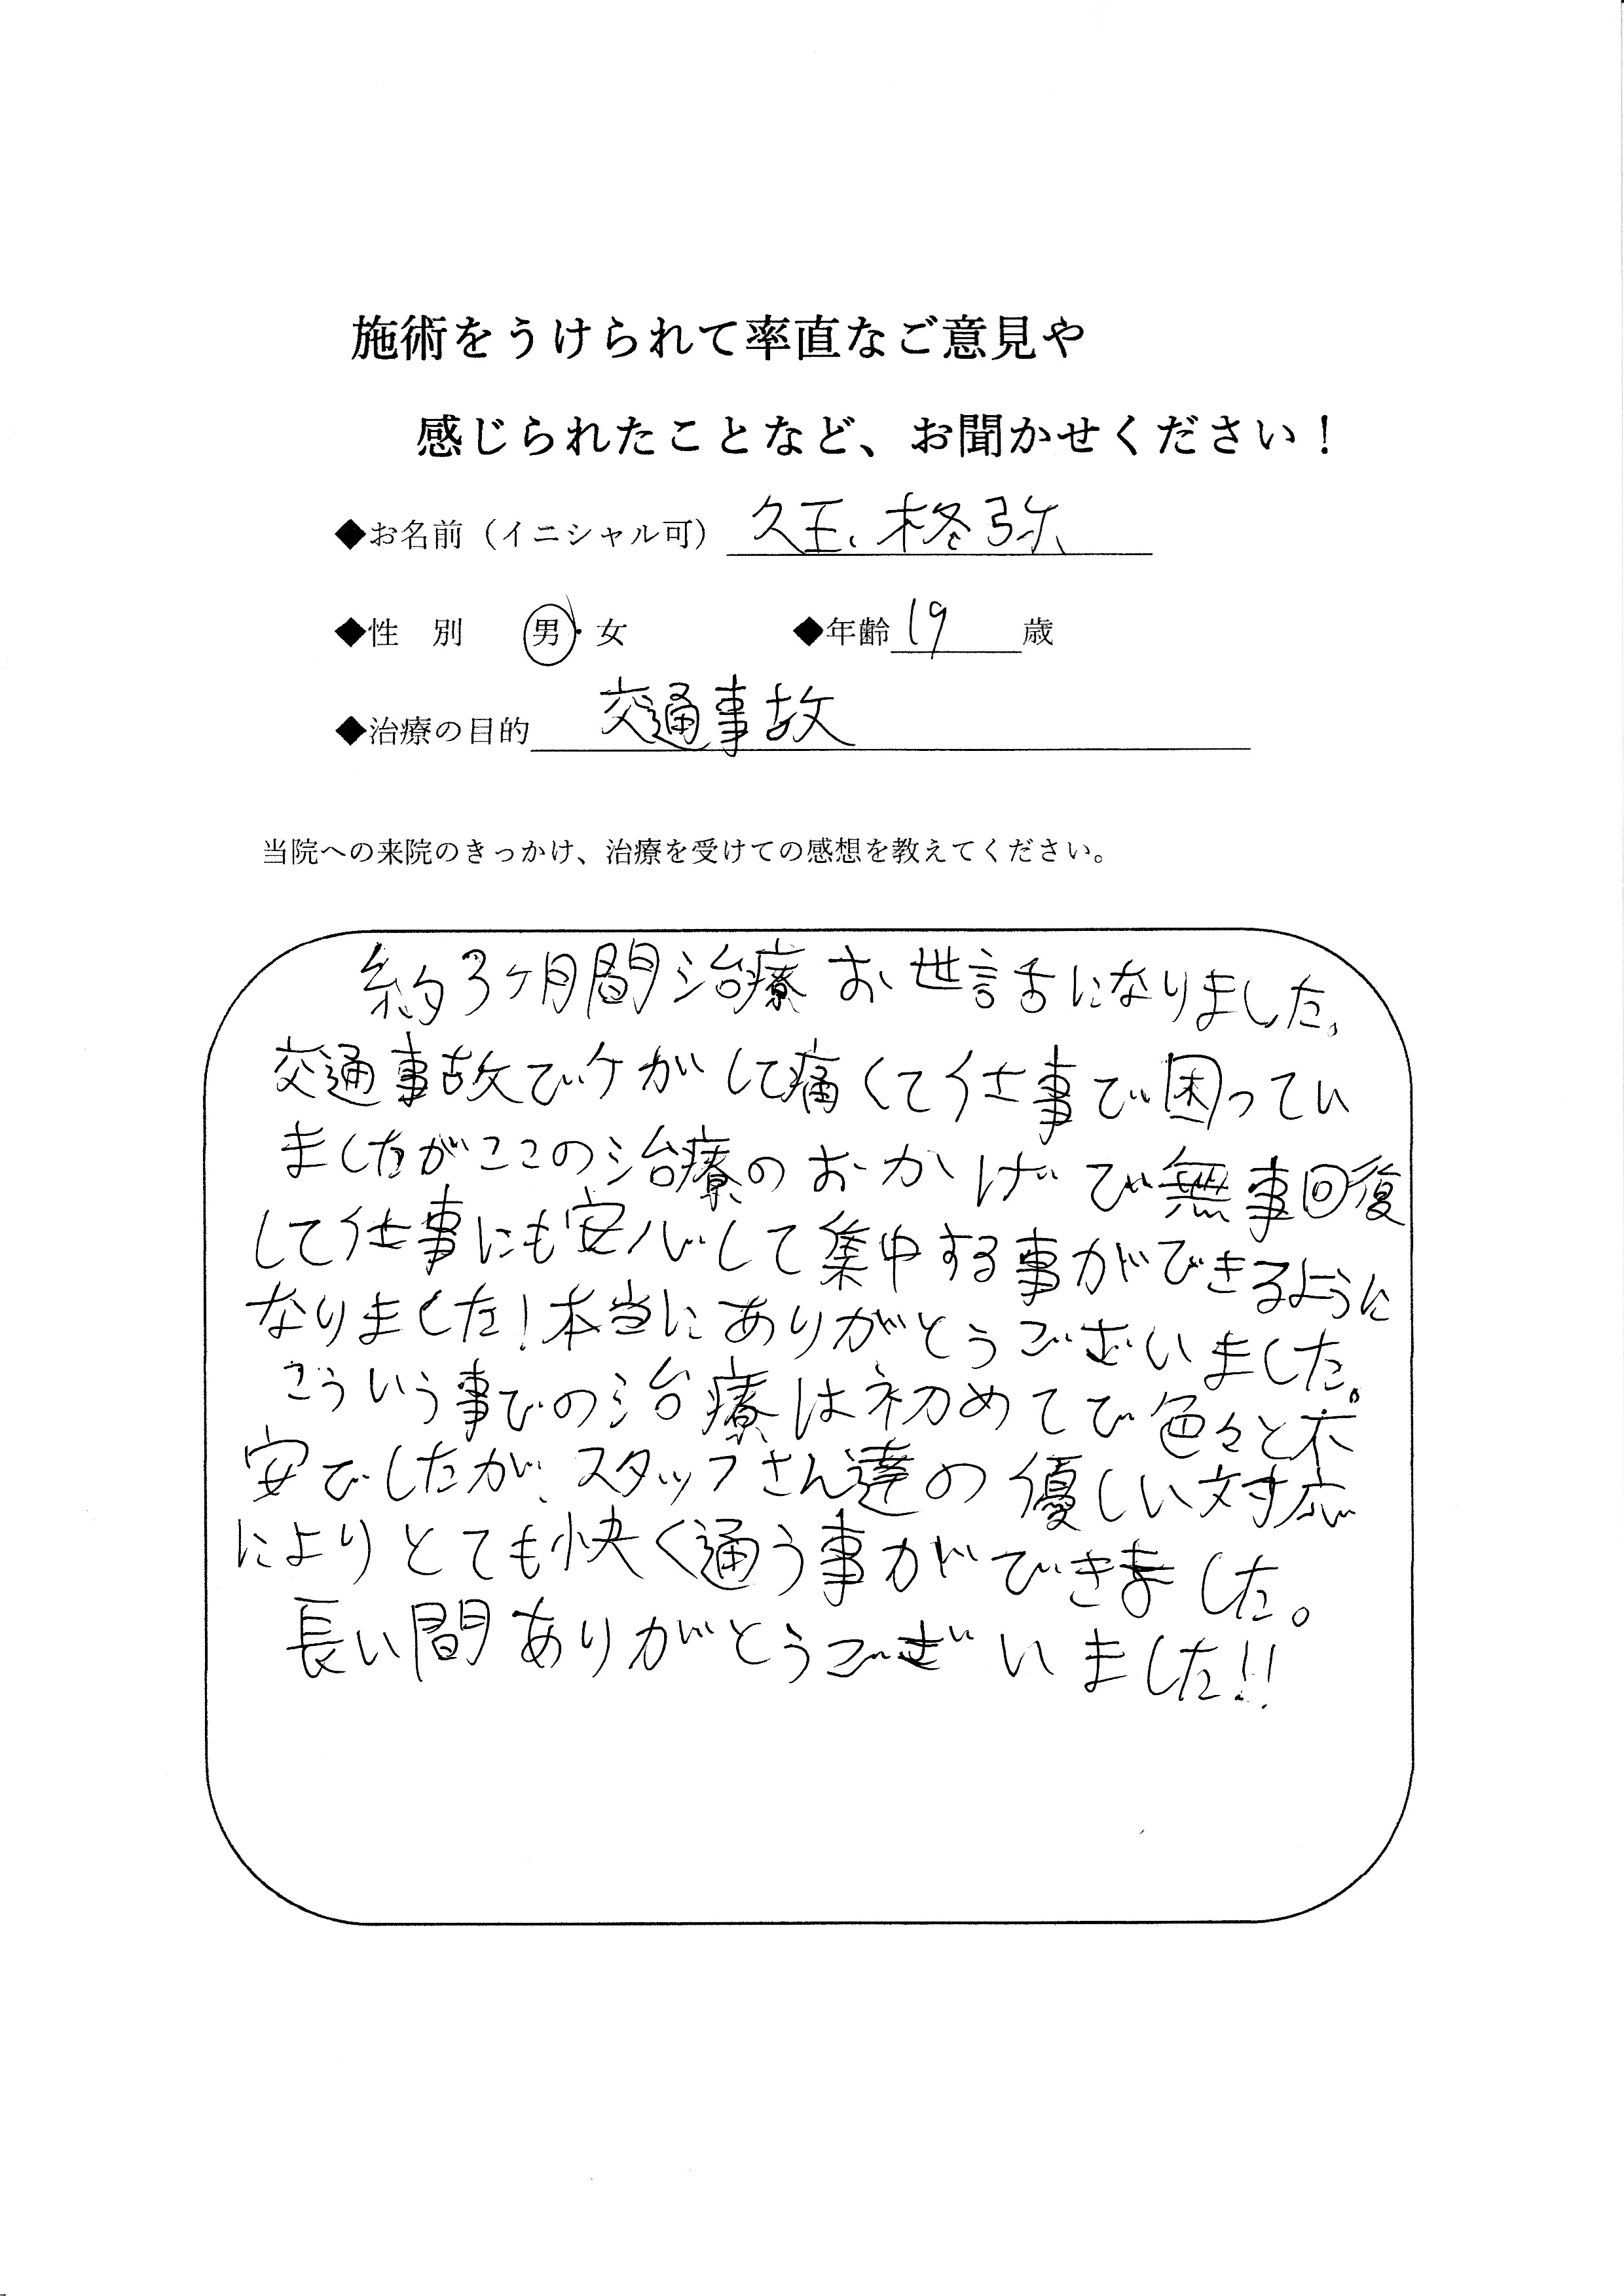 施術をうけられて率直なご意見や
感じられたことなど、お聞かせください！
◆お名前（イニシャル可） 久玉、柊弥
◆性 別 男・女 ◆年齢 19 歳
◆治療の目的 交通事故
当院への来院のきっかけ、治療を受けての感想を教えてください。
約3ヶ月間治療お世話になりました。
交通事故でケガして痛くて仕事で困ってい
ましたがここの治療のおかげで無事回復
して仕事にも安心して集中する事ができるように
なりました！本当にありがとうございました。
こういう事での治療は初めてで色々と不
安でしたが、スタッフさん達の優しい対応
によりとても快く通う事ができました。
長い間ありがとうございました!!